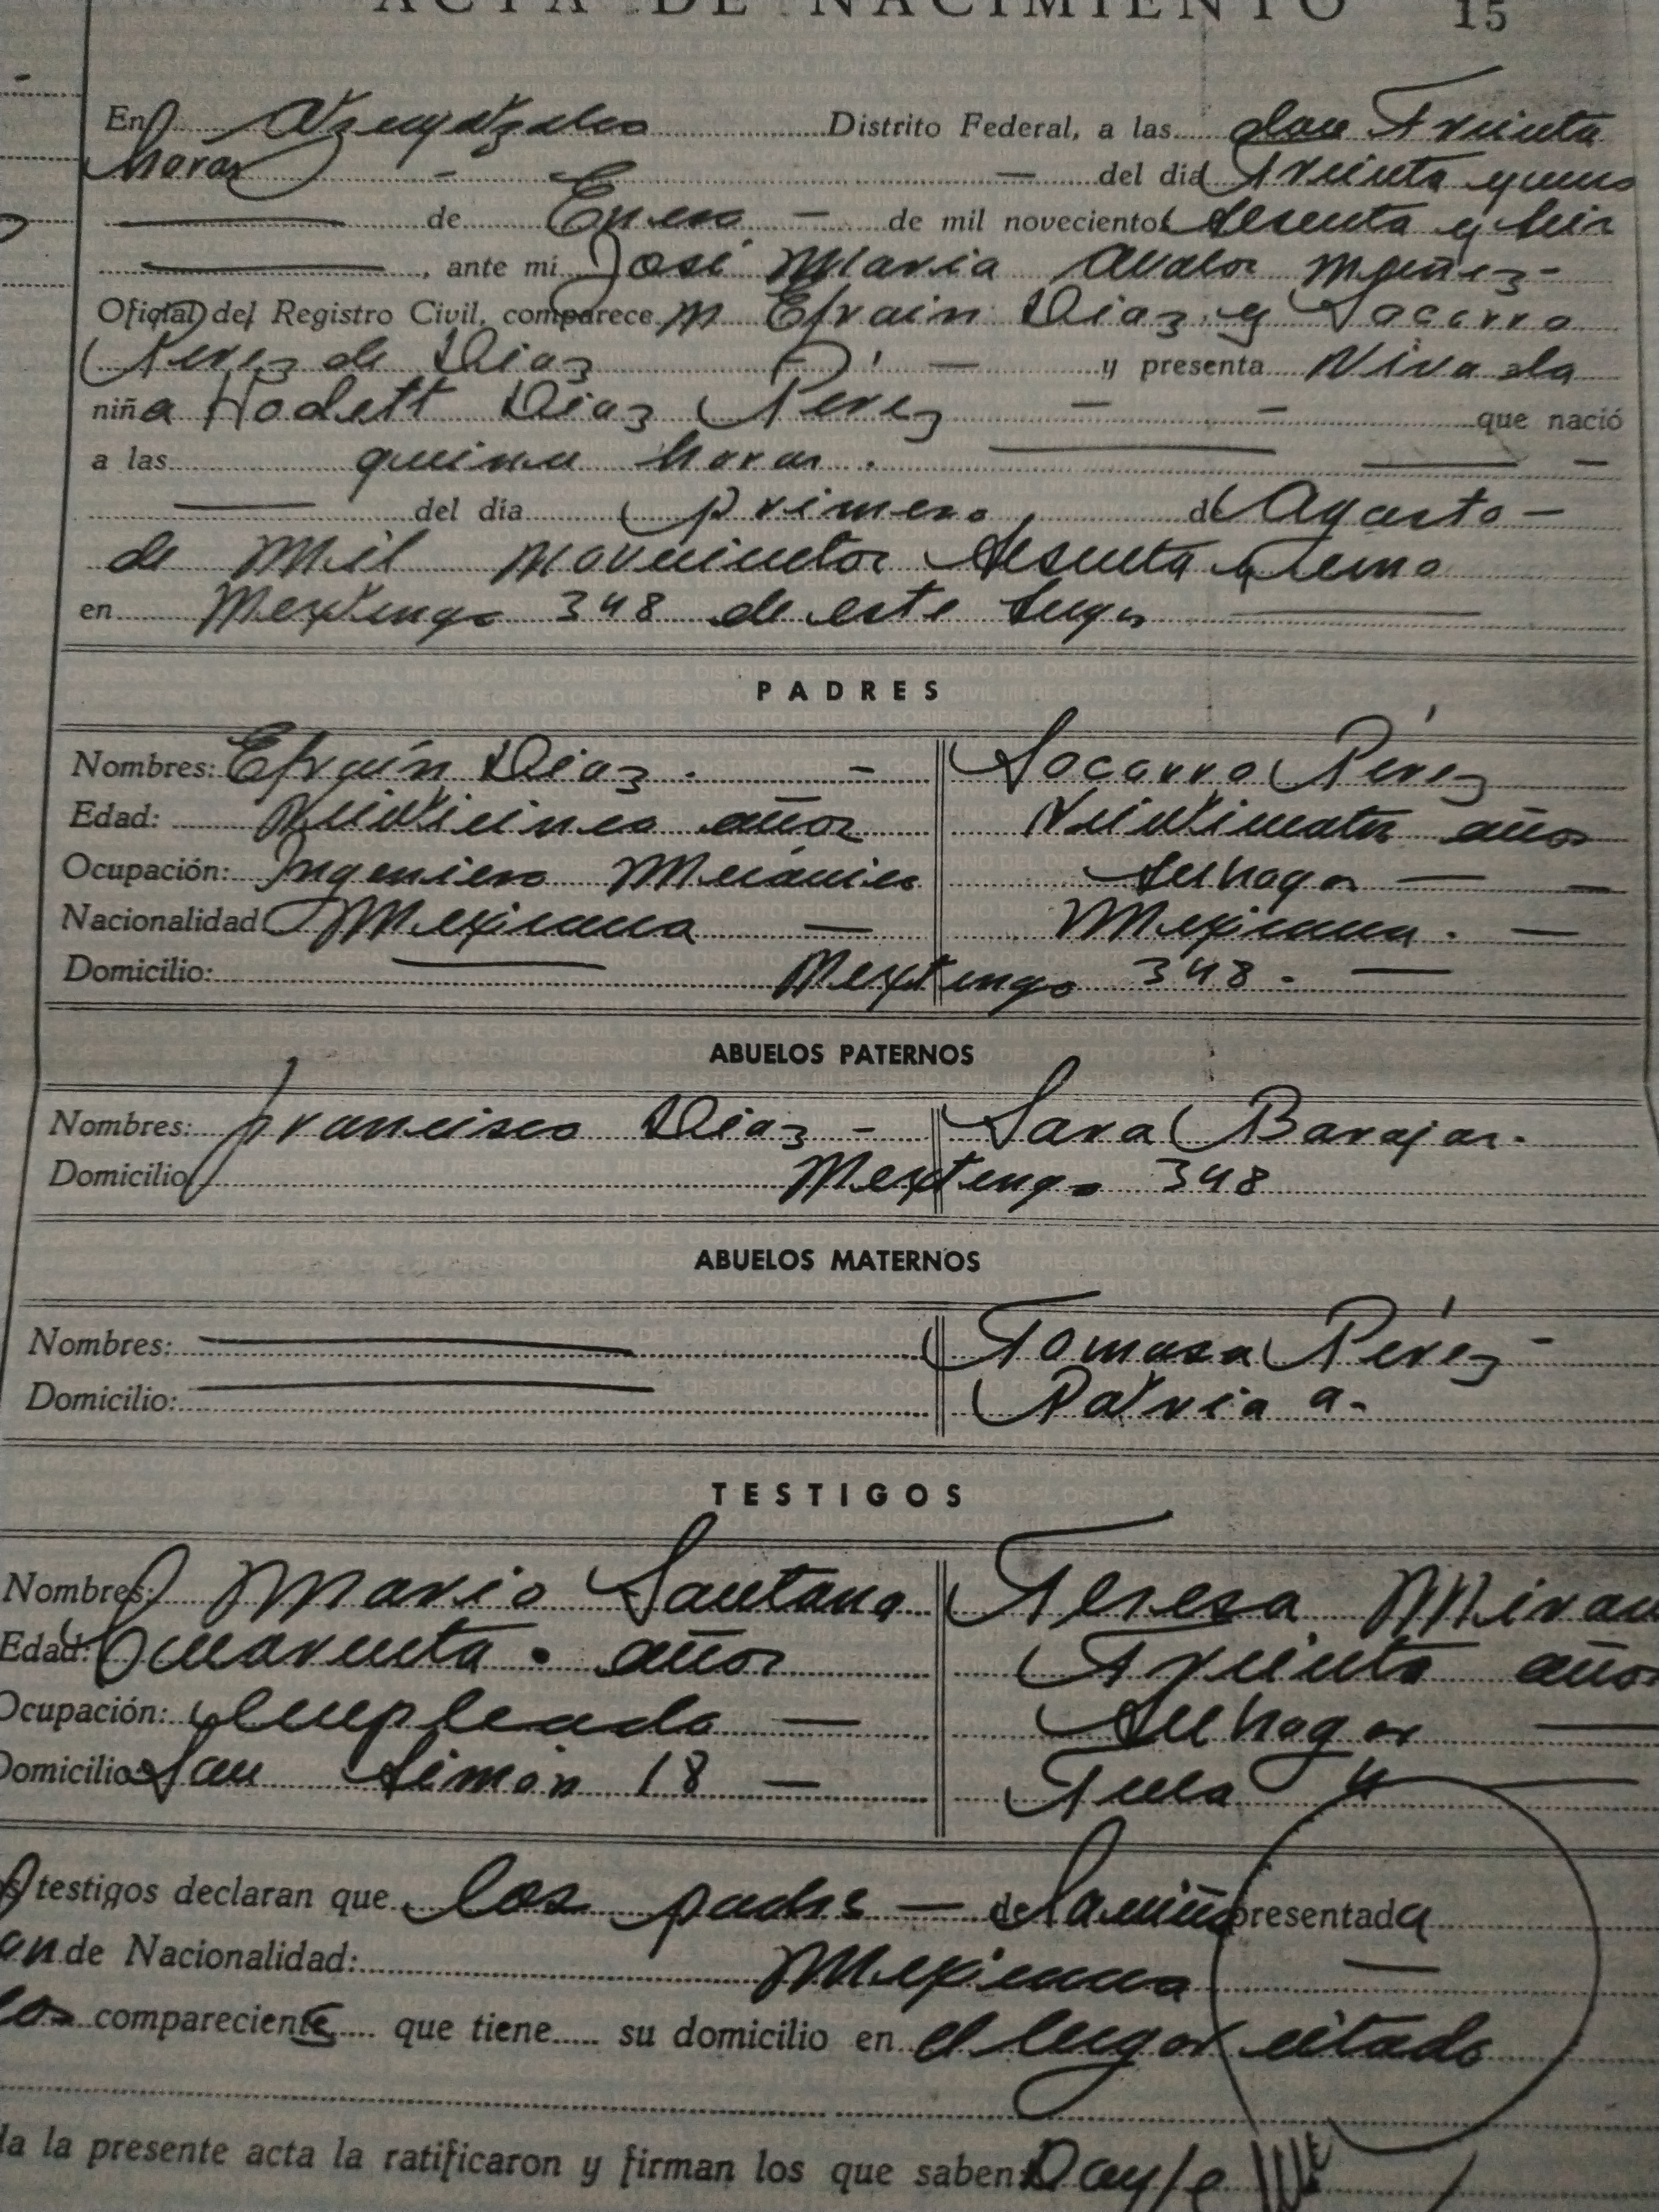 ACTA DE NACIMIENTO 15
En Atzcapotzalco Distrito Federal, a las doce treinta
horas - - del dia treinta y uno
de Enero - de mil novecientos sesenta y seis
, ante mi José Maria Avalos
Oficial del Registro Civil, comparecen Efrain Diaz y Socorro
Perez de Diaz - y presenta viva a la
niña Hodett Diaz Perez - - que nació
a las quince horas.
del dia primero de Agosto -
de mil novecientos sesenta y cinco
en Mextengo 348 de este lugar
PADRES
Nombres: Efraín Diaz. - Socorro Pérez
Edad: Veinticinco años Veinticuatro años
Ocupación: Ingeniero Mecánico Su hogar -
Nacionalidad Mexicana - Mexicana. -
Domicilio: Mextengo 348. -
ABUELOS PATERNOS
Nombres: Francisco Diaz - Sara Barajas.
Domicilio Mextengo 348
ABUELOS MATERNOS
Nombres: Tomasa Pérez -
Domicilio: Patria a.
TESTIGOS
Nombres: Mario Santana Teresa Miran
Edad: Cuarenta. años Treinta años
Ocupación: Empleado - Su hogar -
Domicilio San Simón 18 - Tula 4
testigos declaran que los padres - de la niña presentada
on de Nacionalidad: Mexicana -
los comparecientes que tiene su domicilio en el lugar citado
da la presente acta la ratificaron y firman los que saben. Doy fe